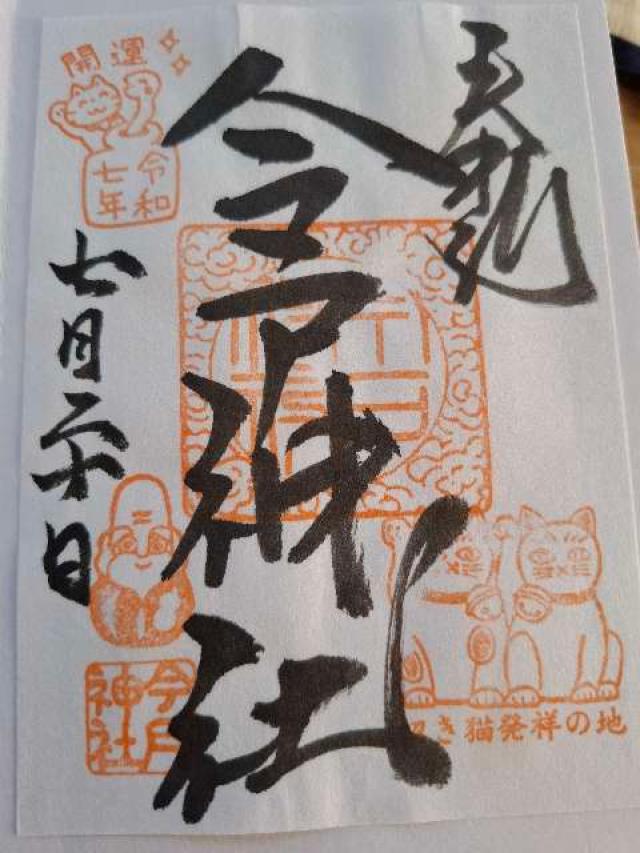 奉拝
今戸神社
開運
令和
七年
七月二十日
今戸
神社
き猫発祥の地